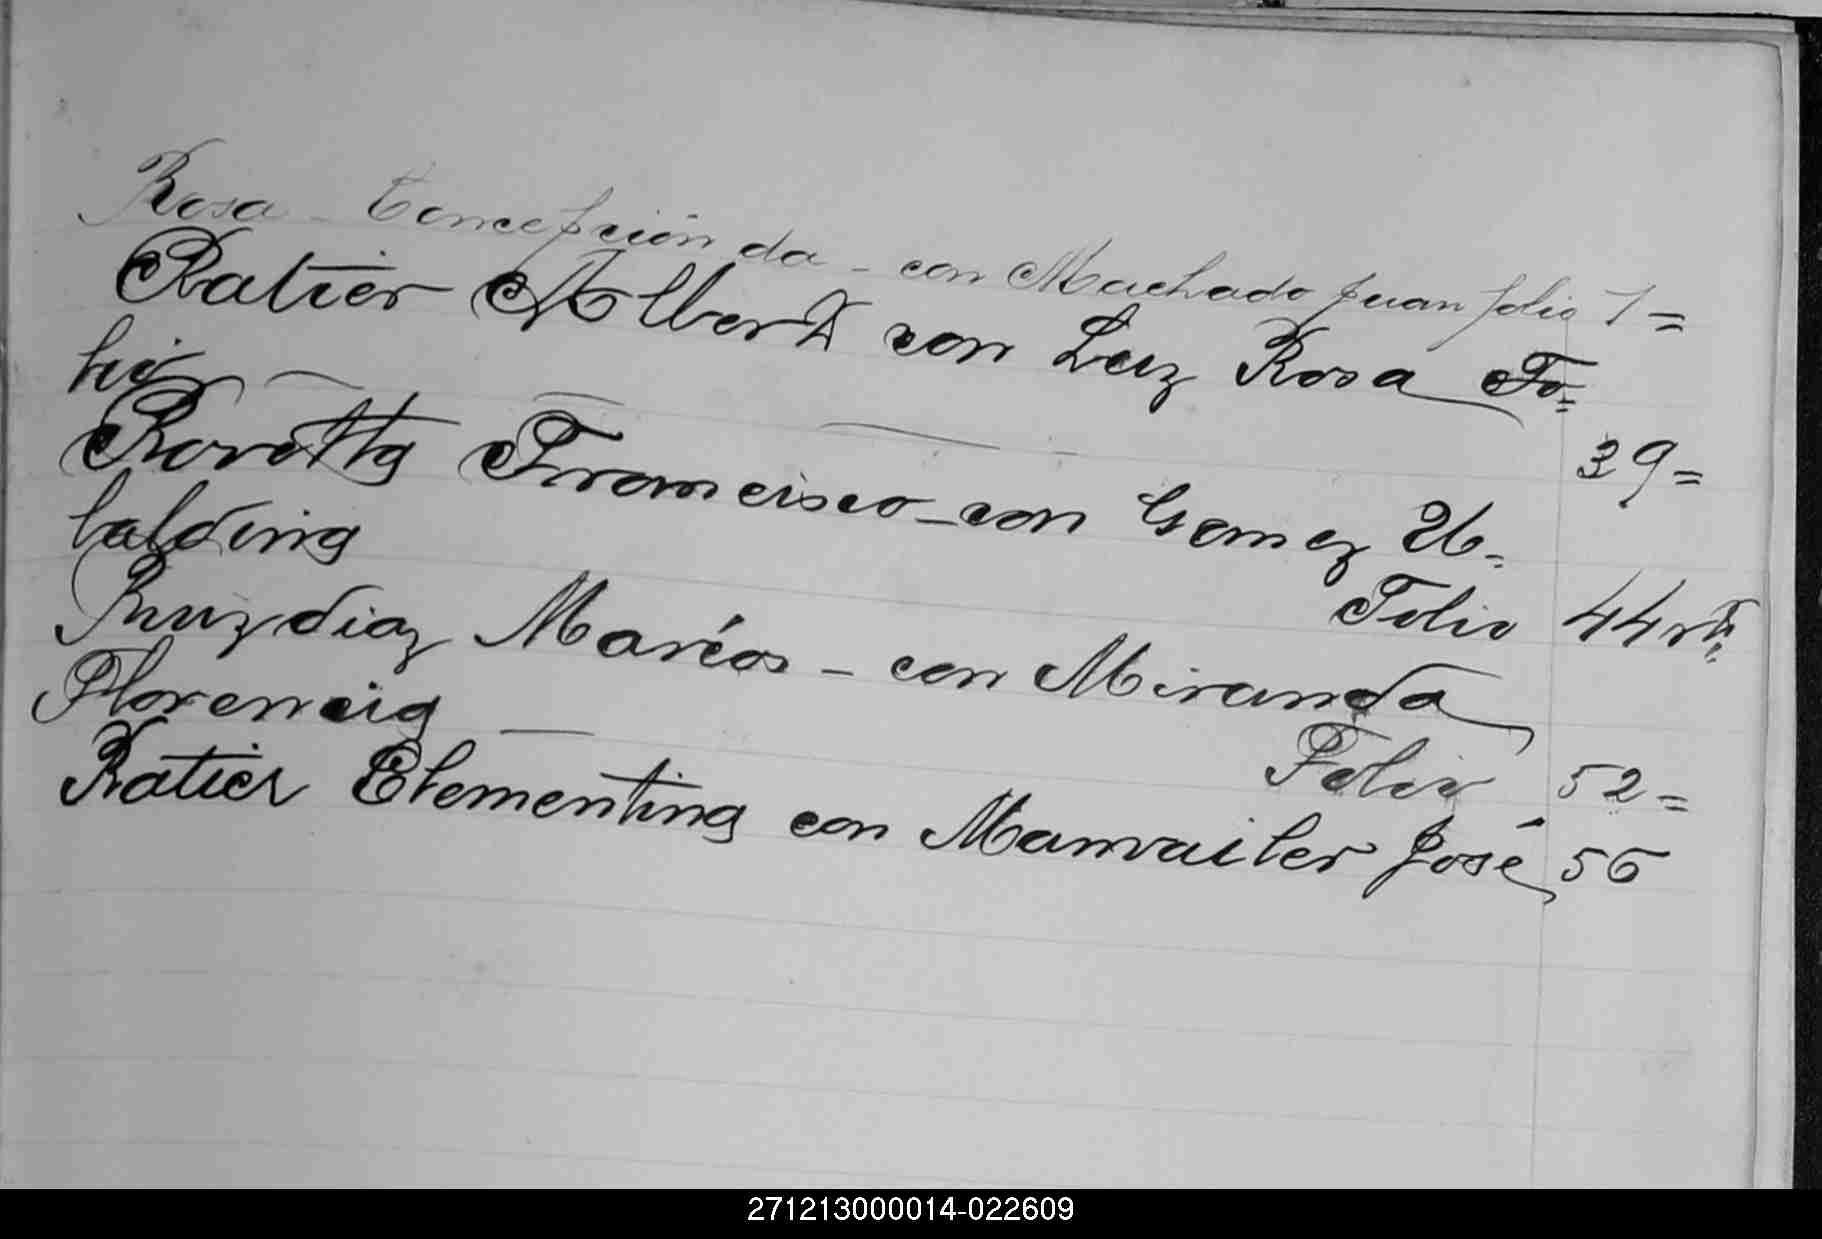 Rosa - Concepción da - con Machado Juan folio 1=
Ratier Albert con Luz Rosa Fo=
lio 39=
Rovotta Francisco - con Gomez Ub=
baldina
Folio 44 vta
Ruiz diaz Marcos - con Miranda
Florencia Folio 52=
Ratier Clementina con Manvailer José 56
271213000014-022609